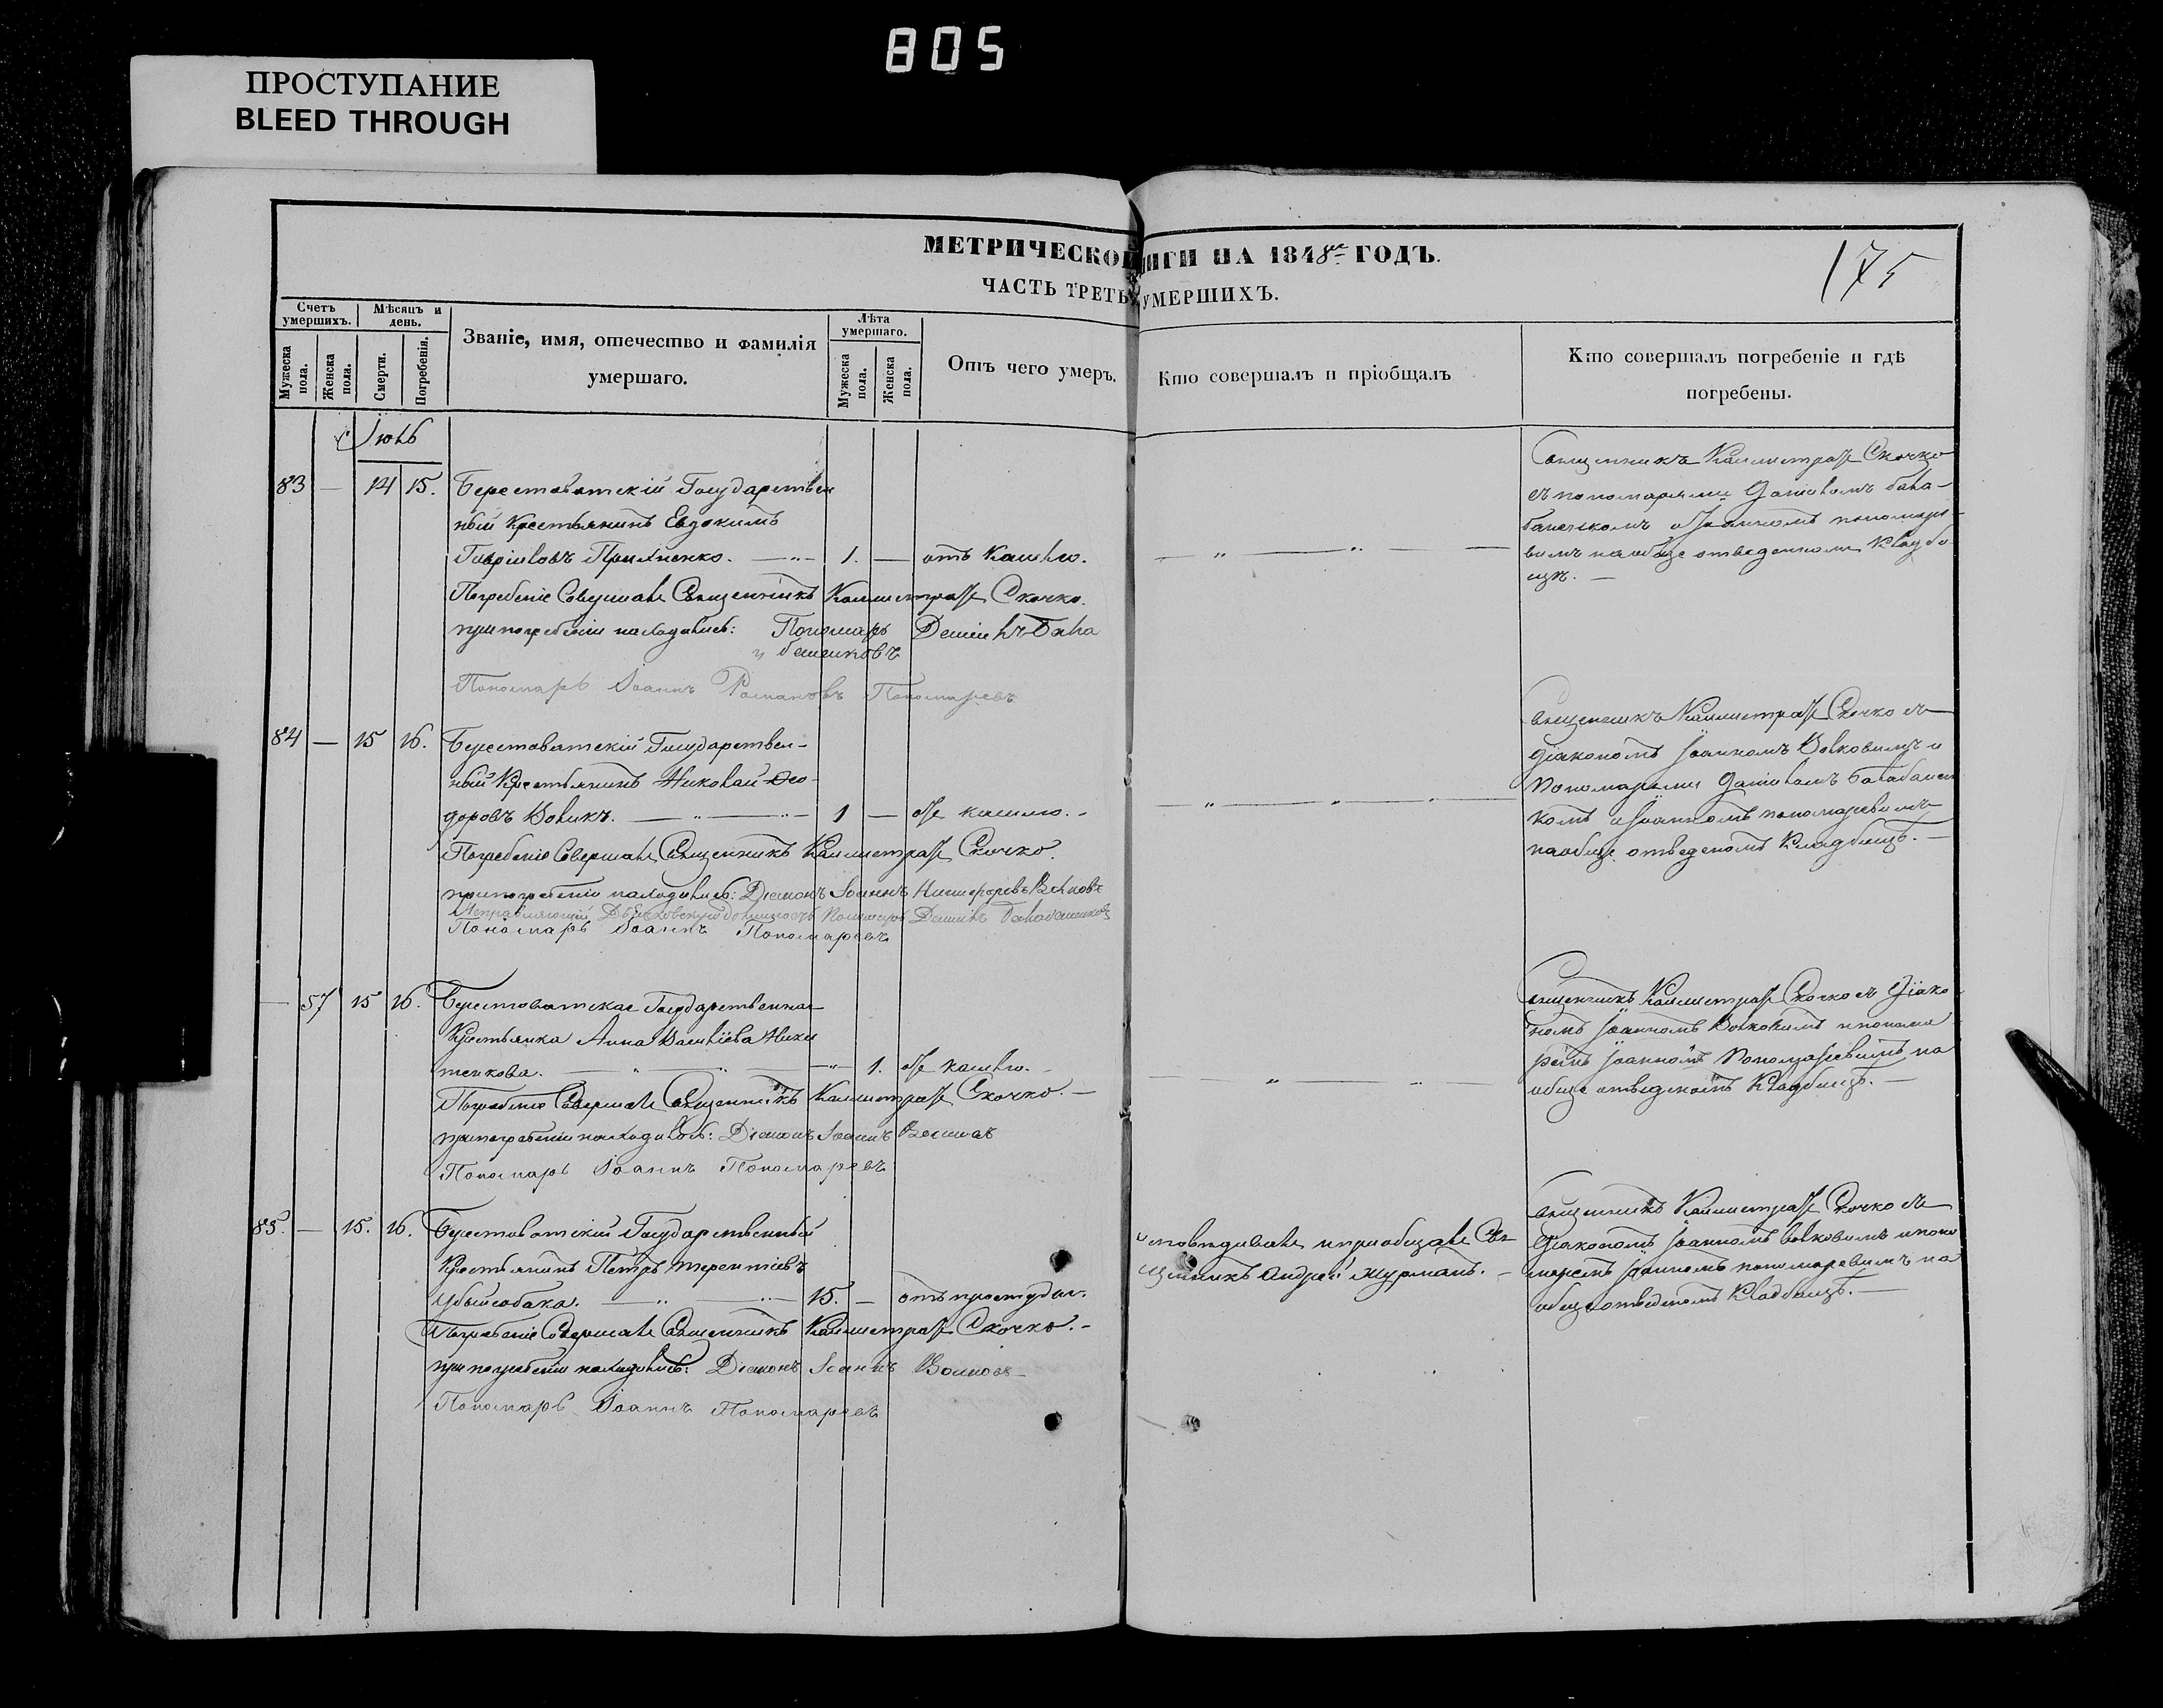 805
ПРОСТУПАНИЕ
BLEED THROUGH
МЕТРИЧЕСКОЙ
НИГИ НА 1848й ГОДЪ.
175
ЧАСТЬ ТРЕТЬ
УМЕРШИХЪ.
Счетъ умершихъ.
Мужеска пола.
Женска пола.
Мѣсяцъ и день.
Смерти.
Погребенія.
Званіе, имя, отечество и фамилія
умершаго.
Лѣта умершаго.
Мужеска пола.
Женска пола.
Отъ чего умеръ.
Кто совершалъ и пріобщалъ
Кто совершалъ погребеніе и гдѣ
погребены.
Іюнь
83 — 14 15. Берестоватскій Государствен
ный Крестьянинъ Евдокимъ
Гавріиловъ 1. — отъ кашлю.
Погребеніе Совершалъ Священникъ Каллистратъ Скочко.
при погребеніи находились: Пономарь Даніилъ Бала
баненковъ
Пономарь Іоаннъ Романовъ Пономаревъ
Священникъ Каллистратъ Скочко
съ пономарями Даніиломъ Бала-
баненкомъ и Іоанномъ пономаре-
вымъ на обще отведенномъ кладби
щѣ.
84 — 15 16. Берестоватскій Государствен-
ный Крестьянинъ Николай Ѳео-
доровъ Вовикъ. 1 — отъ кашлю.
Погребеніе Совершалъ Священникъ Каллистратъ Скочко.
при погребеніи находились: Діаконъ Іоаннъ Волковъ
Исправляющій Дьячковскую должность Пономарь Даніилъ Балабаненковъ
Пономарь Іоаннъ Пономаревъ
Священникъ Каллистратъ Скочко съ
Діакономъ Іоанномъ Волковымъ и
Пономарями Даніиломъ Балабанен
комъ и Іоанномъ пономаревымъ
на обще отведеномъ кладбищѣ.
— 57 15 16. Берестоватская Государственная
Крестьянка Анна Ники
тенкова. 1. отъ кашлю.
Погребеніе Совершалъ Священникъ Каллистратъ Скочко.
при погребеніи находились: Діаконъ Іоаннъ Волковъ
Пономарь Іоаннъ Пономаревъ
Священникъ Каллистратъ Скочко съ Діако
номъ Іоанномъ Волковымъ и понома
ремъ Іоанномъ Пономаревымъ на
обще отведеномъ кладбищѣ.
85. — 15. 16. Берестоватскій Государственный
Крестьянинъ Петръ Терентіевъ
Убыйсобака. 15. — отъ простуды.
Погребеніе Совершалъ Священникъ Каллистратъ Скочко.
при погребеніи находились: Діаконъ Іоаннъ Волковъ
Пономарь Іоаннъ Пономаревъ
исповѣдывалъ и пріобщалъ Свя
щенникъ Андрей Журманъ.
Священникъ Каллистратъ Скочко съ
Діакономъ Іоанномъ Волковымъ и поно
маремъ Іоанномъ пономаревымъ на
обще отведеномъ кладбищѣ.